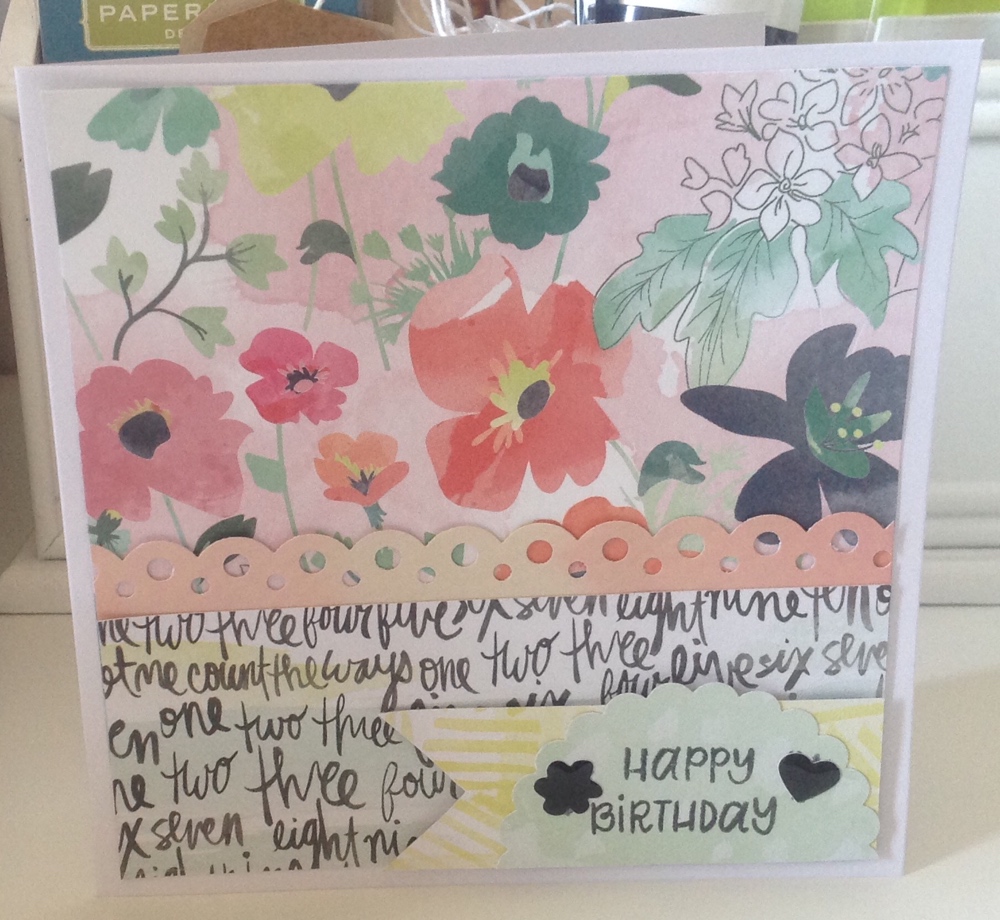 PAPER
DE
one two three four five six seven eight nine ten o
et me count the ways one two three five six seve
en one two three six four
ne two three four
x seven eight nin
HAPPY
BiRTHDAY